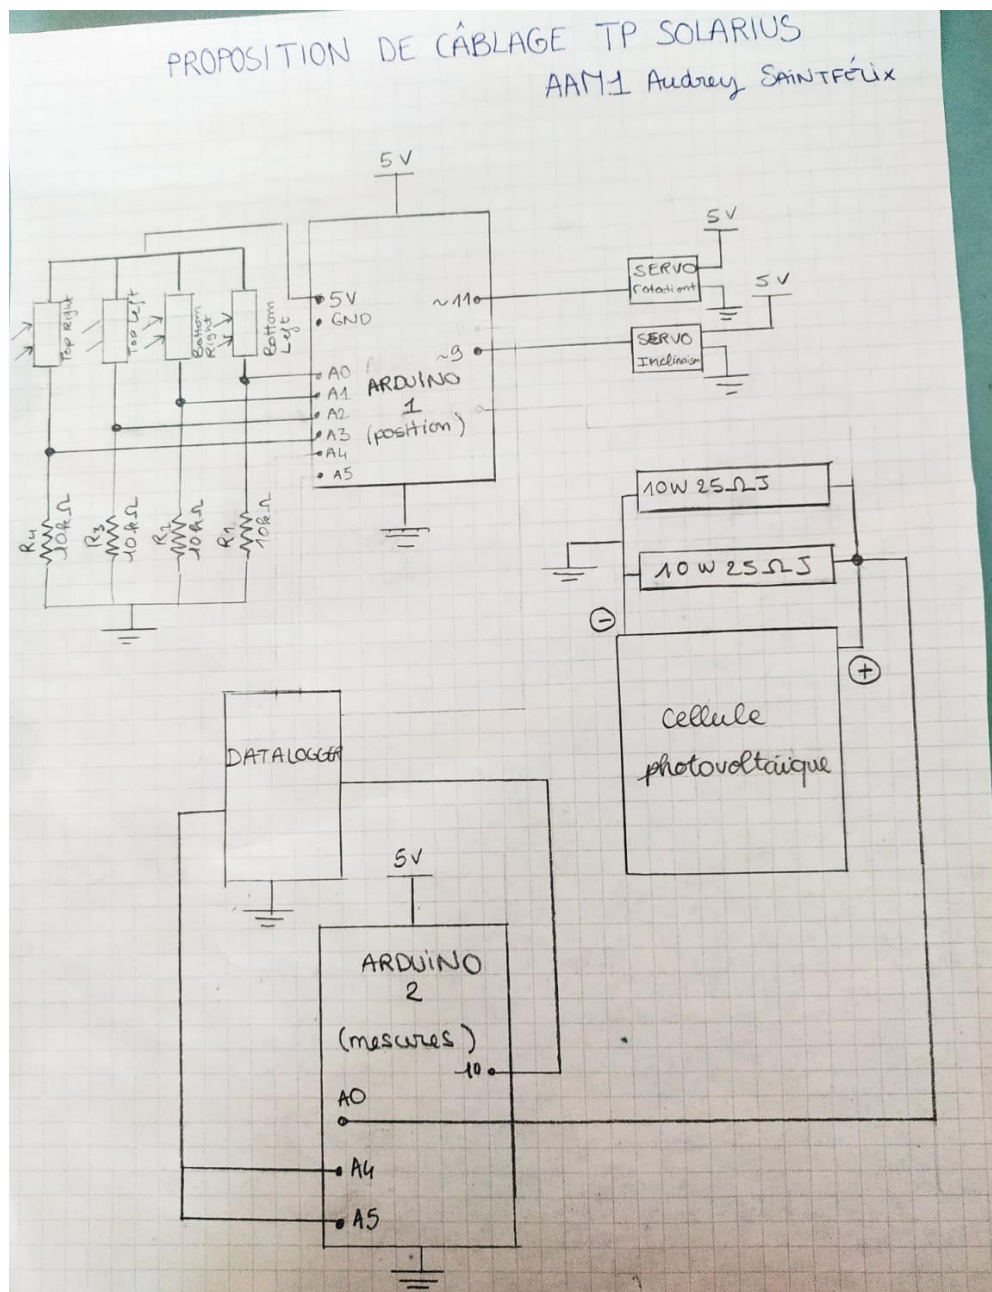 PROPOSITION DE CÂBLAGE TP SOLARIUS
AAM1 Audrey SAINTFÉLIX
5V
5V
SERVO
rotation
5V
SERVO
Inclinaison
Top Right
Top Left
Bottom
Right
Bottom
Left
5V
GND
~11
~9
A0
A1
A2
A3
A4
A5
ARDUINO
1
(position)
R4
10kΩ
R3
10kΩ
R2
10kΩ
R1
10kΩ
10W 25ΩJ
10W 25ΩJ
-
+
cellule
photovoltaïque
DATALOGGER
5V
ARDUINO
2
(mesures)
10
A0
A4
A5